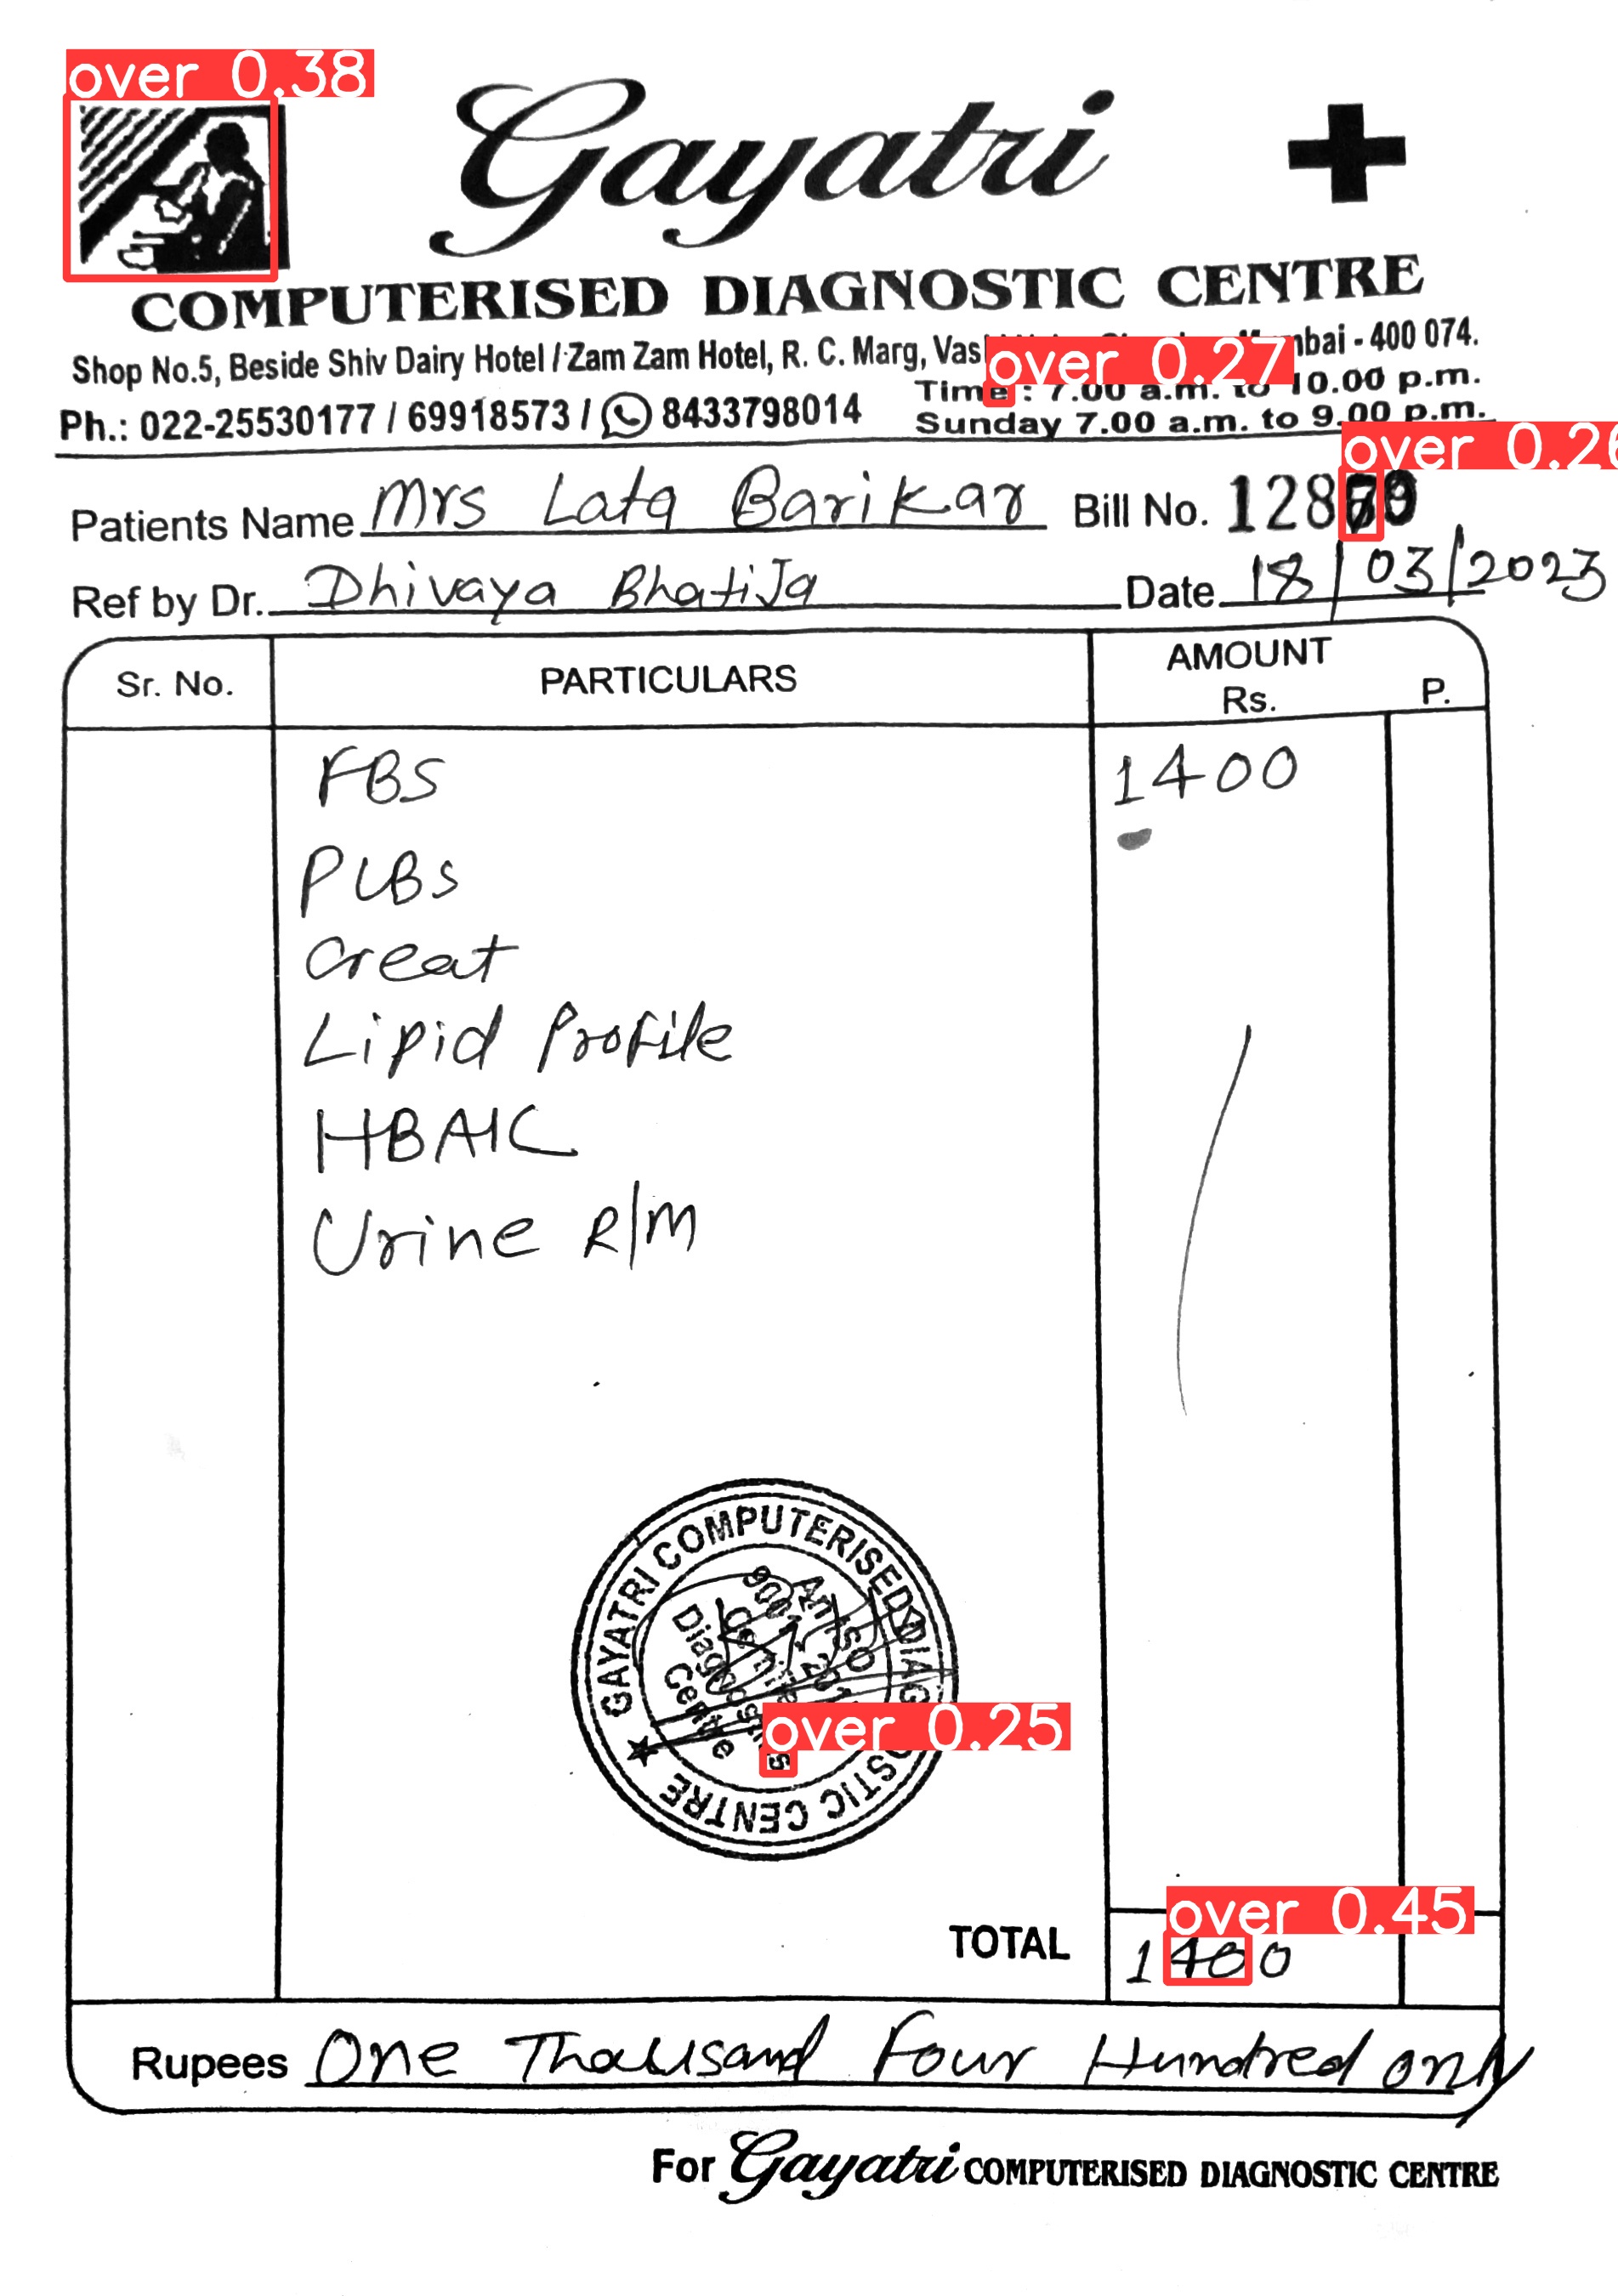 over 0.38
Gayatri
COMPUTERISED DIAGNOSTIC CENTRE
Shop No.5, Beside Shiv Dairy Hotel / Zam Zam Hotel, R. C. Marg, - 400 074.
over 0.27
Time : 7.00 a.m. to 10.00 p.m.
Ph.: 022-25530177 / 69918573 / 8433798014
Sunday 7.00 a.m. to 9.00 p.m.
over 0.26
Patients Name Mrs Lata Barikar Bill No.
Ref by Dr. Dhivaya BhatiJa Date 18/03/2023
Sr. No. PARTICULARS AMOUNT
Rs. P.
FBS 1400
PLBS
Creat
Lipid Profile
HBAIC
Urine R/M
GAYATRI COMPUTERISED DIAGNOSTIC CENTRE
Diagnostics
Centre
over 0.25
over 0.45
TOTAL 1400
Rupees One Thousand Four Hundred only
For Gayatri COMPUTERISED DIAGNOSTIC CENTRE